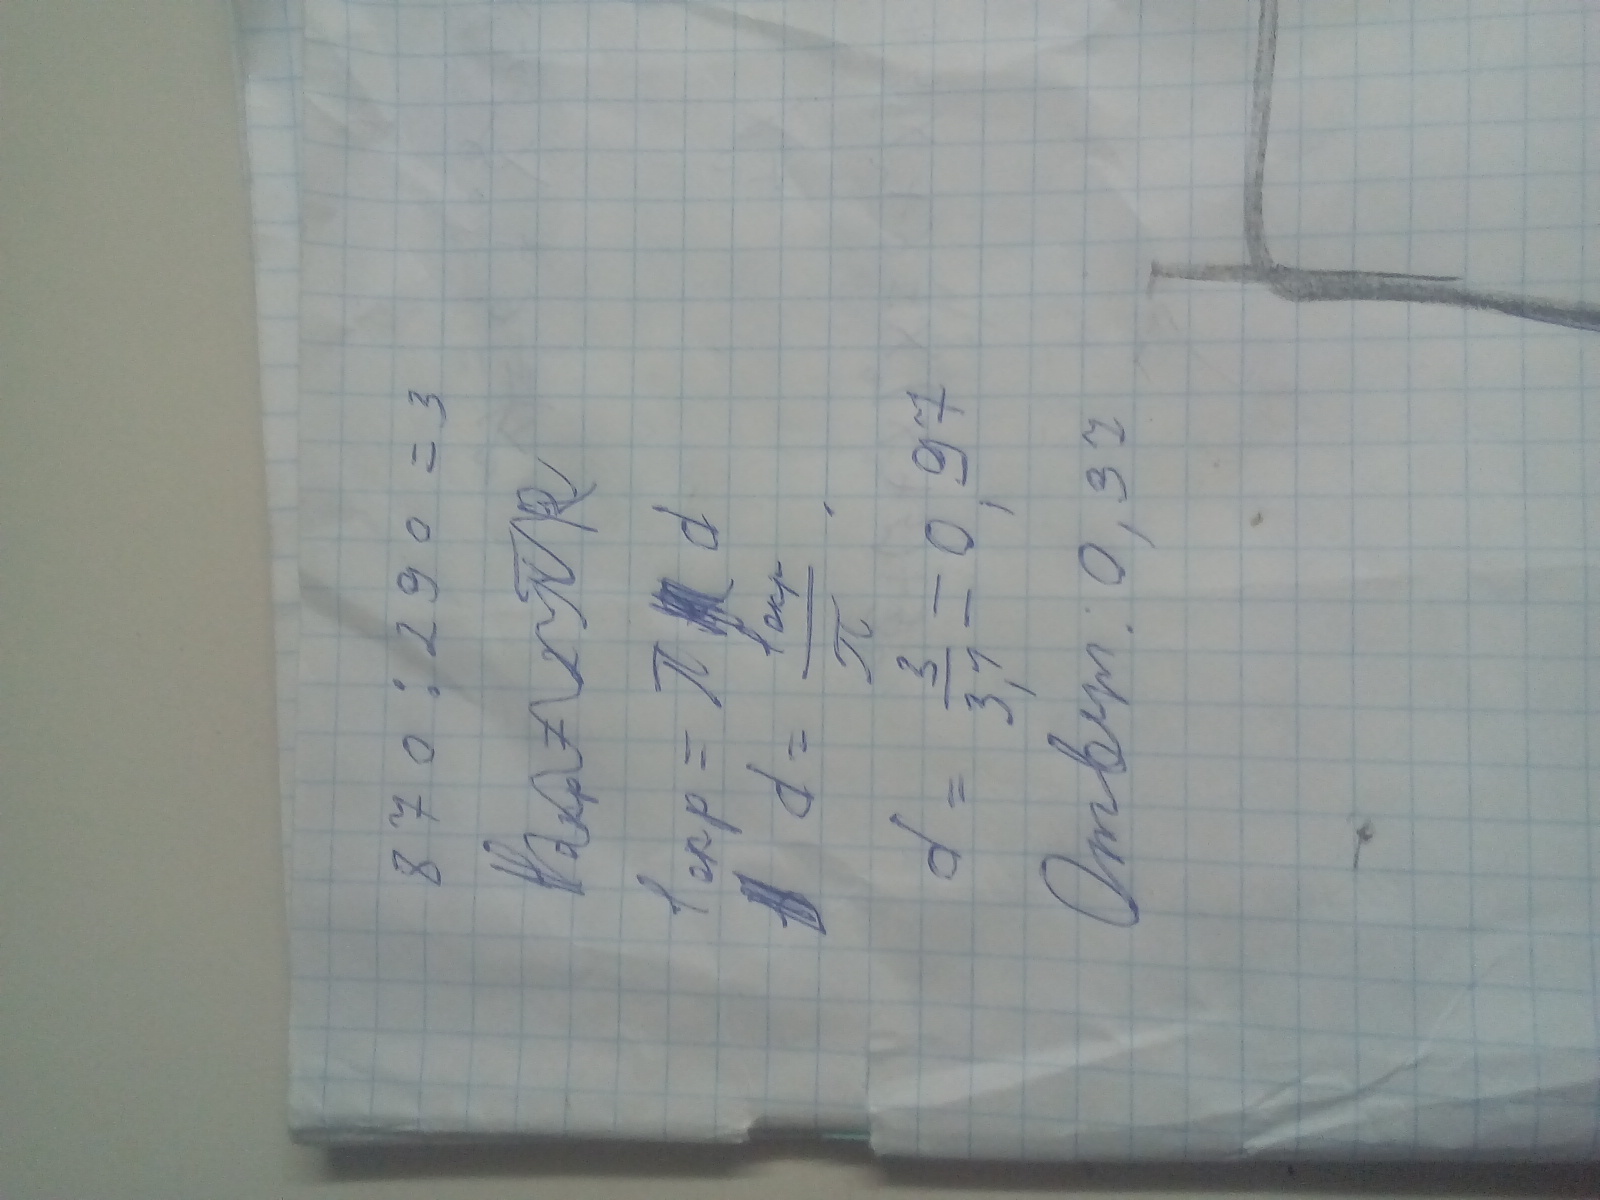 870 : 290 = 3
lокр = π d
d = lокр / π
d = 3 / 3,1 = 0,97
Ответ: 0,97